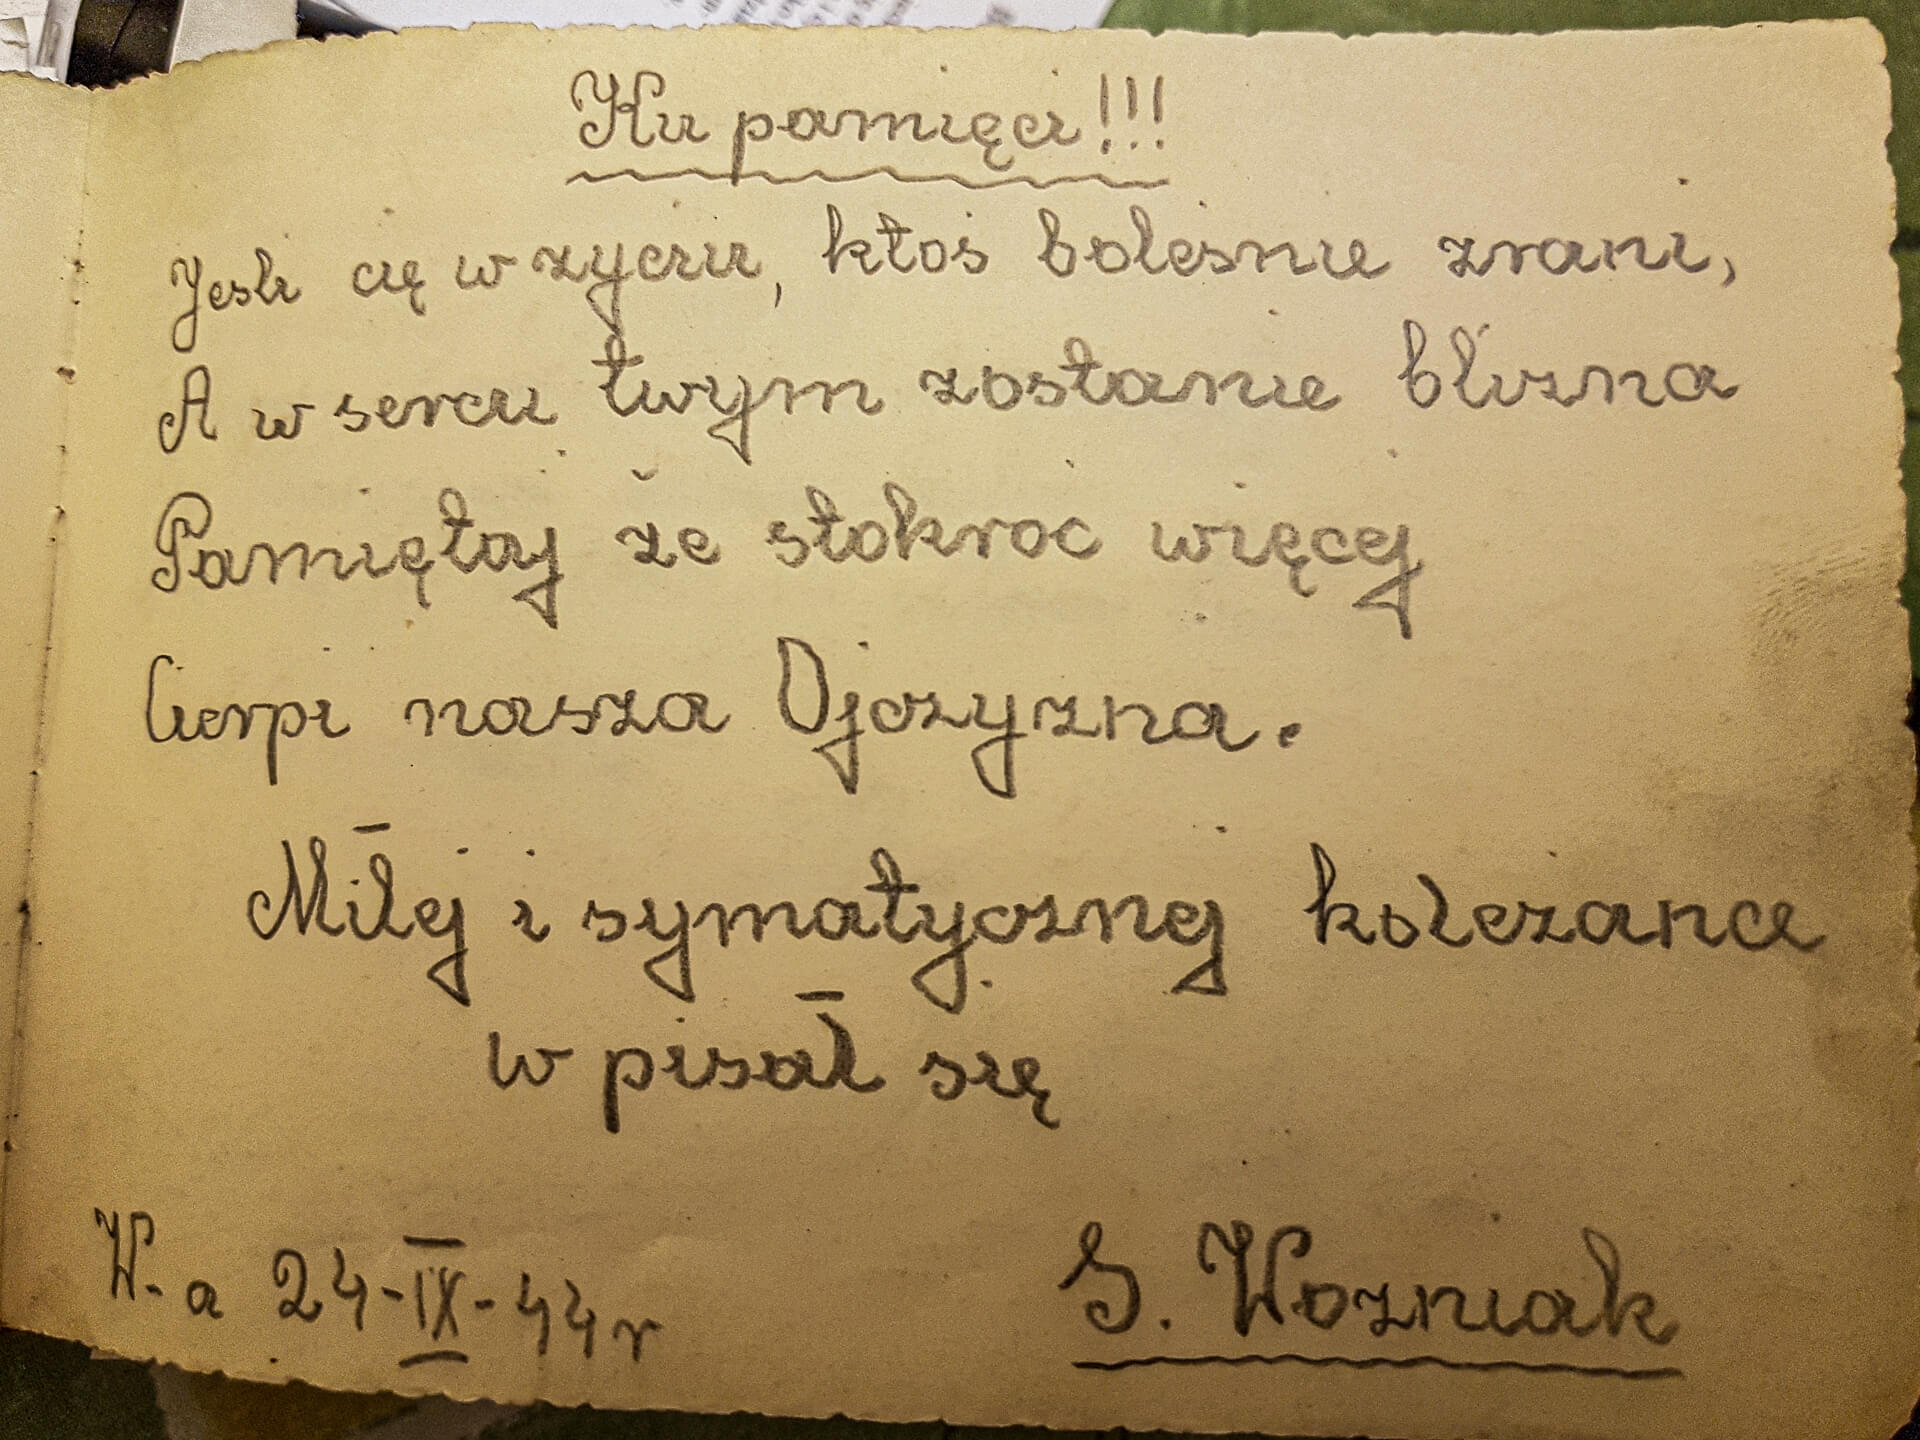 Ku pamięci!!!
Jeśli cię w życiu, ktoś boleśnie zrani,
A w sercu twym zostanie blizna
Pamiętaj że stokroć więcej
Cierpi nasza Ojczyzna.
Miłej i symatycznej koleżance
w pisał się
W-a 24-IX-44r
S. Woźniak